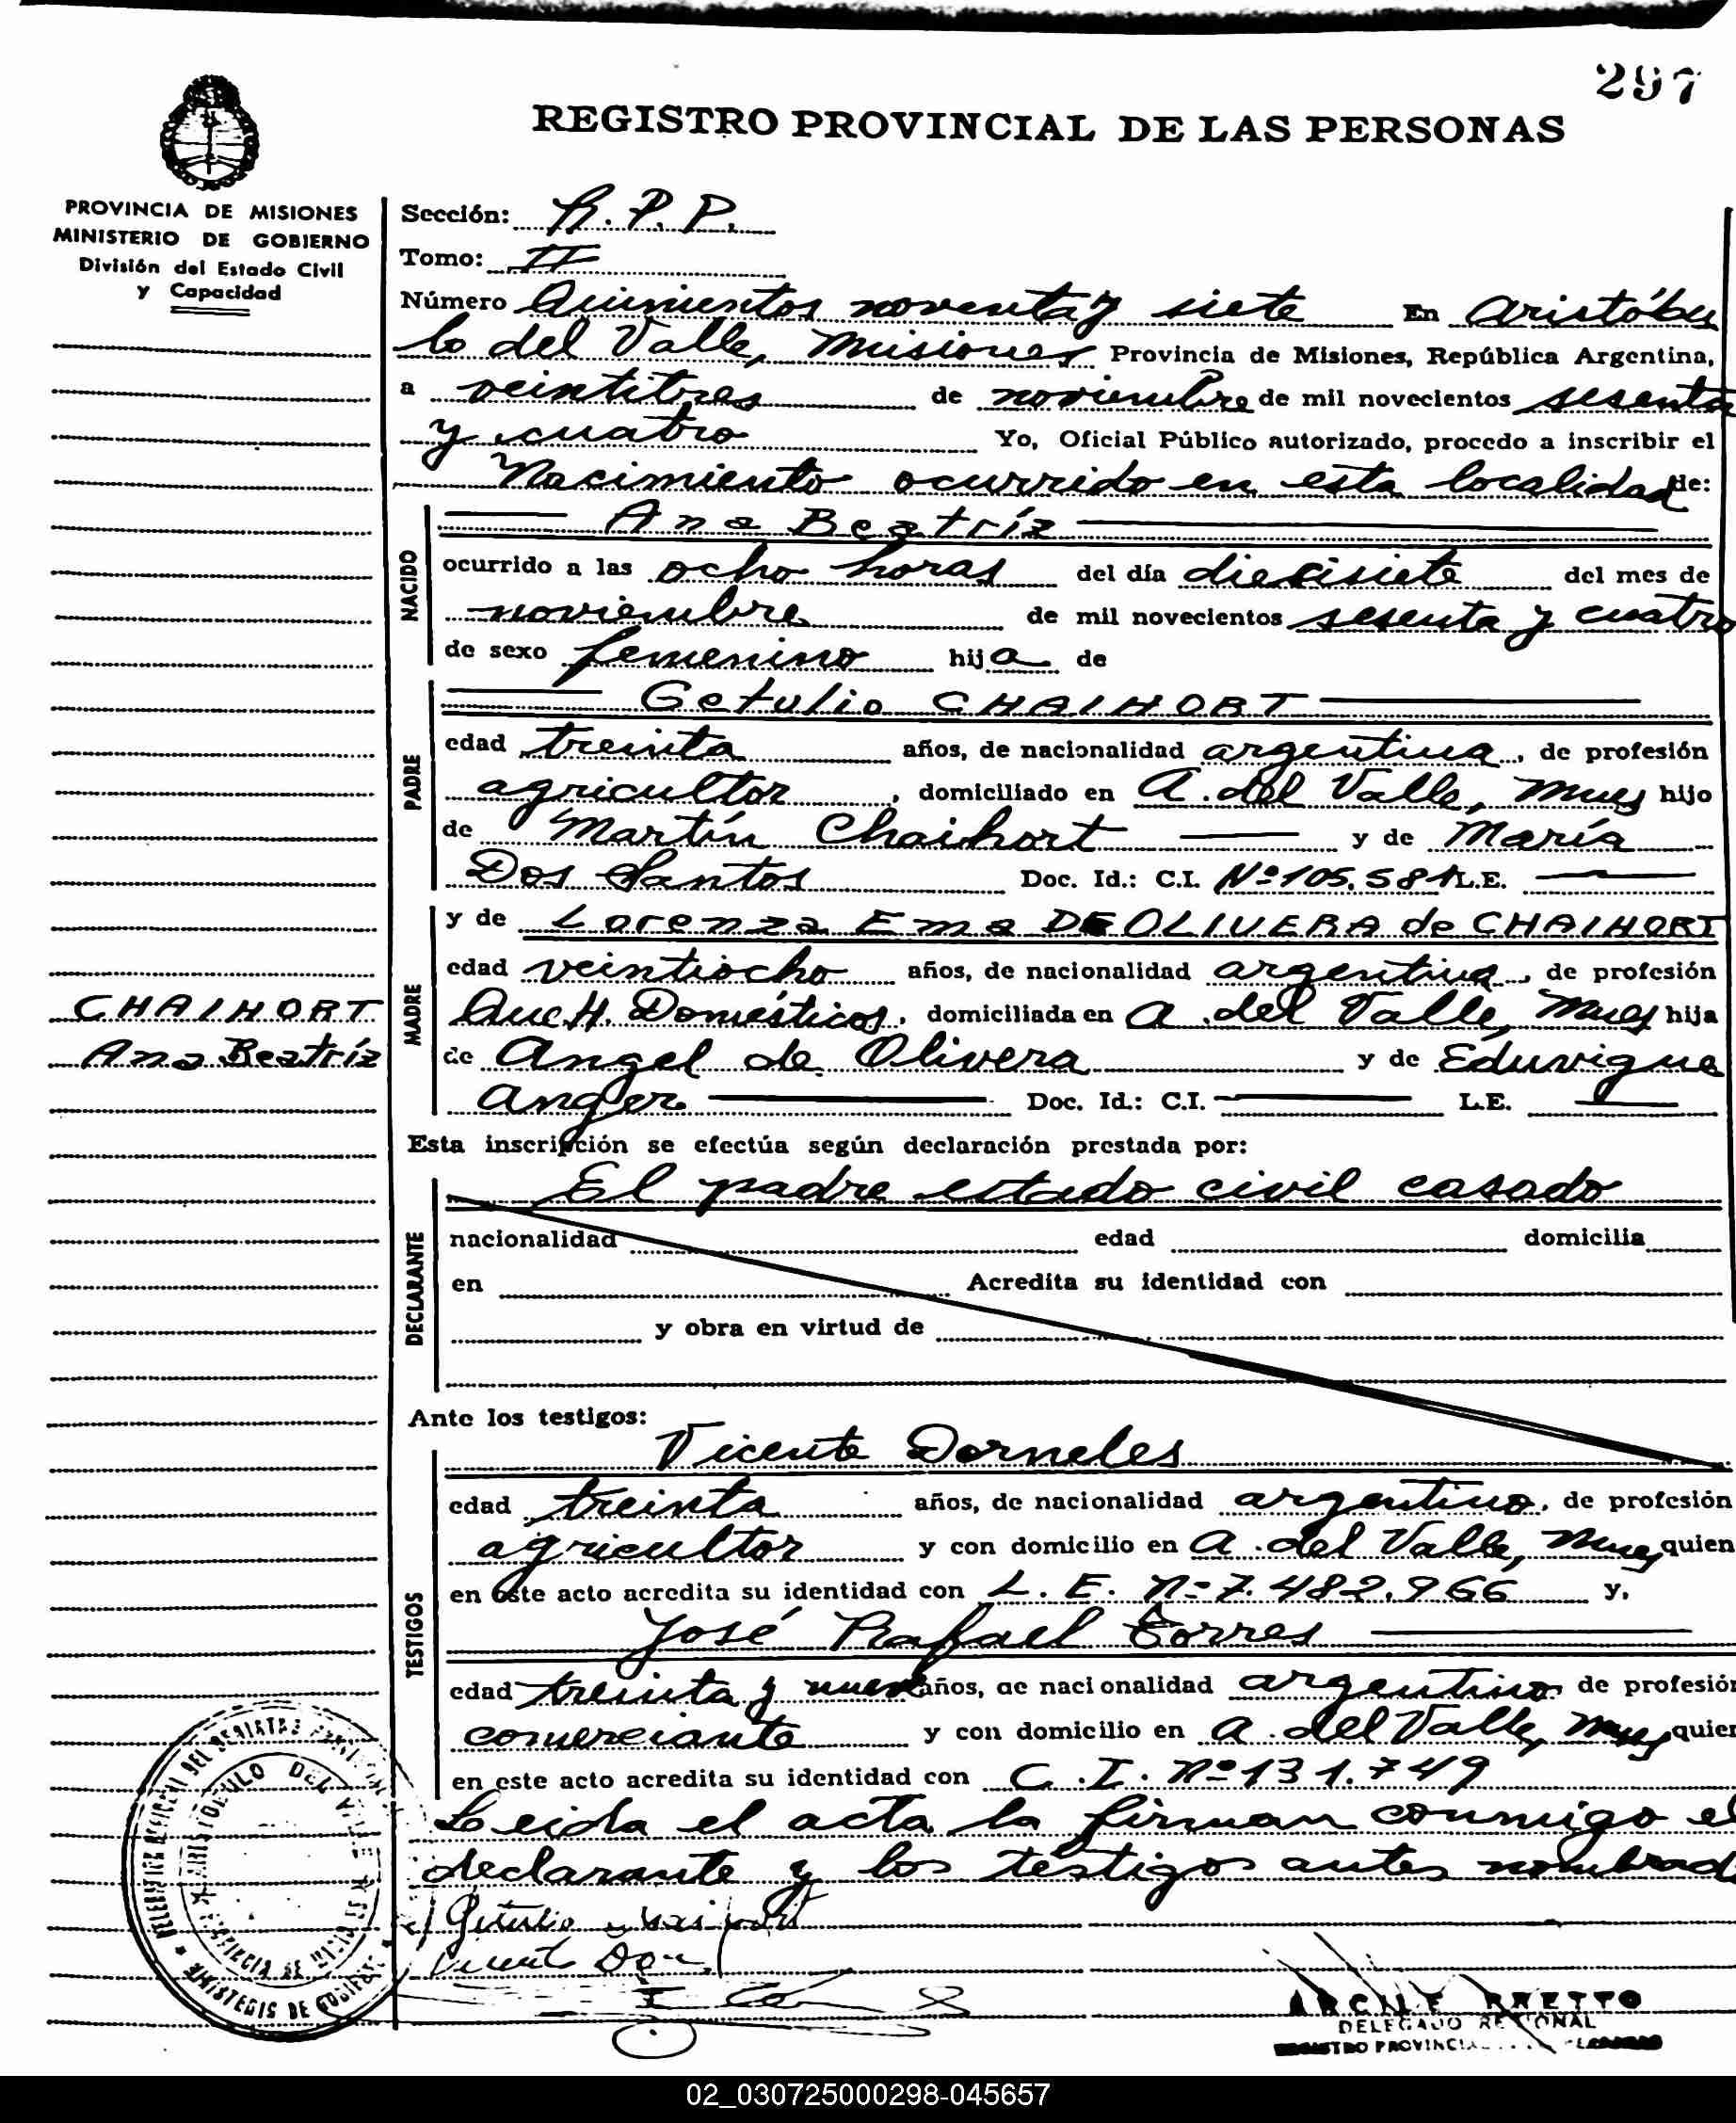 297
REGISTRO PROVINCIAL DE LAS PERSONAS
PROVINCIA DE MISIONES
MINISTERIO DE GOBIERNO
División del Estado Civil
y Capacidad
Sección: R. P. P.
Tomo: II
Número Quinientos noventa y siete En Aristóbu
lo del Valle, Misiones Provincia de Misiones, República Argentina,
a veintitres de noviembre de mil novecientos sesenta
y cuatro Yo, Oficial Público autorizado, procedo a inscribir el
Nacimiento ocurrido en esta localidad de:
NACIDO
Ana Beatríz
ocurrido a las ocho horas del día diecisiete del mes de
noviembre de mil novecientos sesenta y cuatro
de sexo femenino hija de
PADRE
Getulio CHAIHORT
edad treinta años, de nacionalidad argentina, de profesión
agricultor, domiciliado en A. del Valle, Mnes hijo
de Martín Chaihort y de María
Dos Santos Doc. Id.: C.I. Nº 105.581 L.E.
MADRE
y de Lorenza Ema DE OLIVERA de CHAIHORT
edad veintiocho años, de nacionalidad argentina, de profesión
Que H. Domésticos, domiciliada en A. del Valle, Mnes hija
de Angel de Olivera y de Eduvigue
Anger Doc. Id.: C.I. L.E.
CHAIHORT
Ana Beatríz
Esta inscripción se efectúa según declaración prestada por:
DECLARANTE
El padre estado civil casado
nacionalidad edad domicilia
en Acredita su identidad con
y obra en virtud de
Ante los testigos:
TESTIGOS
Vicente Dorneles
edad treinta años, de nacionalidad argentino, de profesión
agricultor y con domicilio en A. del Valle, Mnes, quien
en este acto acredita su identidad con L. E. Nº 7.482.966 y,
José Rafael Torres
edad treinta y nueve años, de nacionalidad argentino de profesión
comerciante y con domicilio en A. del Valle, Mnes, quien
en este acto acredita su identidad con C. I. Nº 131.749
Leida el acta la firman conmigo el
declarante y los testigos antes nombrad
Getulio Chaihort
Vicente Dor
DELEGADO REGIONAL
REGISTRO PROVINCIAL
ARISTOBULO DEL VALLE
MINISTERIO DE GOBIERNO
02_030725000298-045657